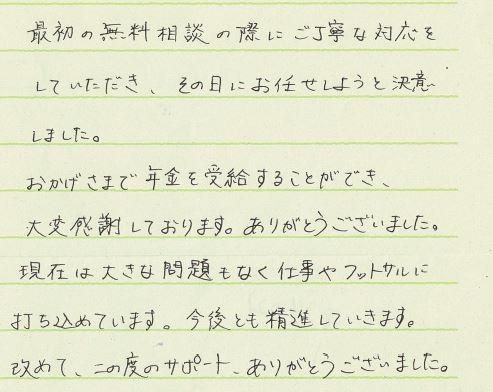 最初の無料相談の際にご丁寧な対応を
していただき、その日にお任せしようと決意
しました。
おかげさまで年金を受給することができ、
大変感謝しております。ありがとうございました。
現在は大きな問題もなく仕事やフットサルに
打ち込めています。今後とも精進していきます。
改めて、この度のサポート、ありがとうございました。